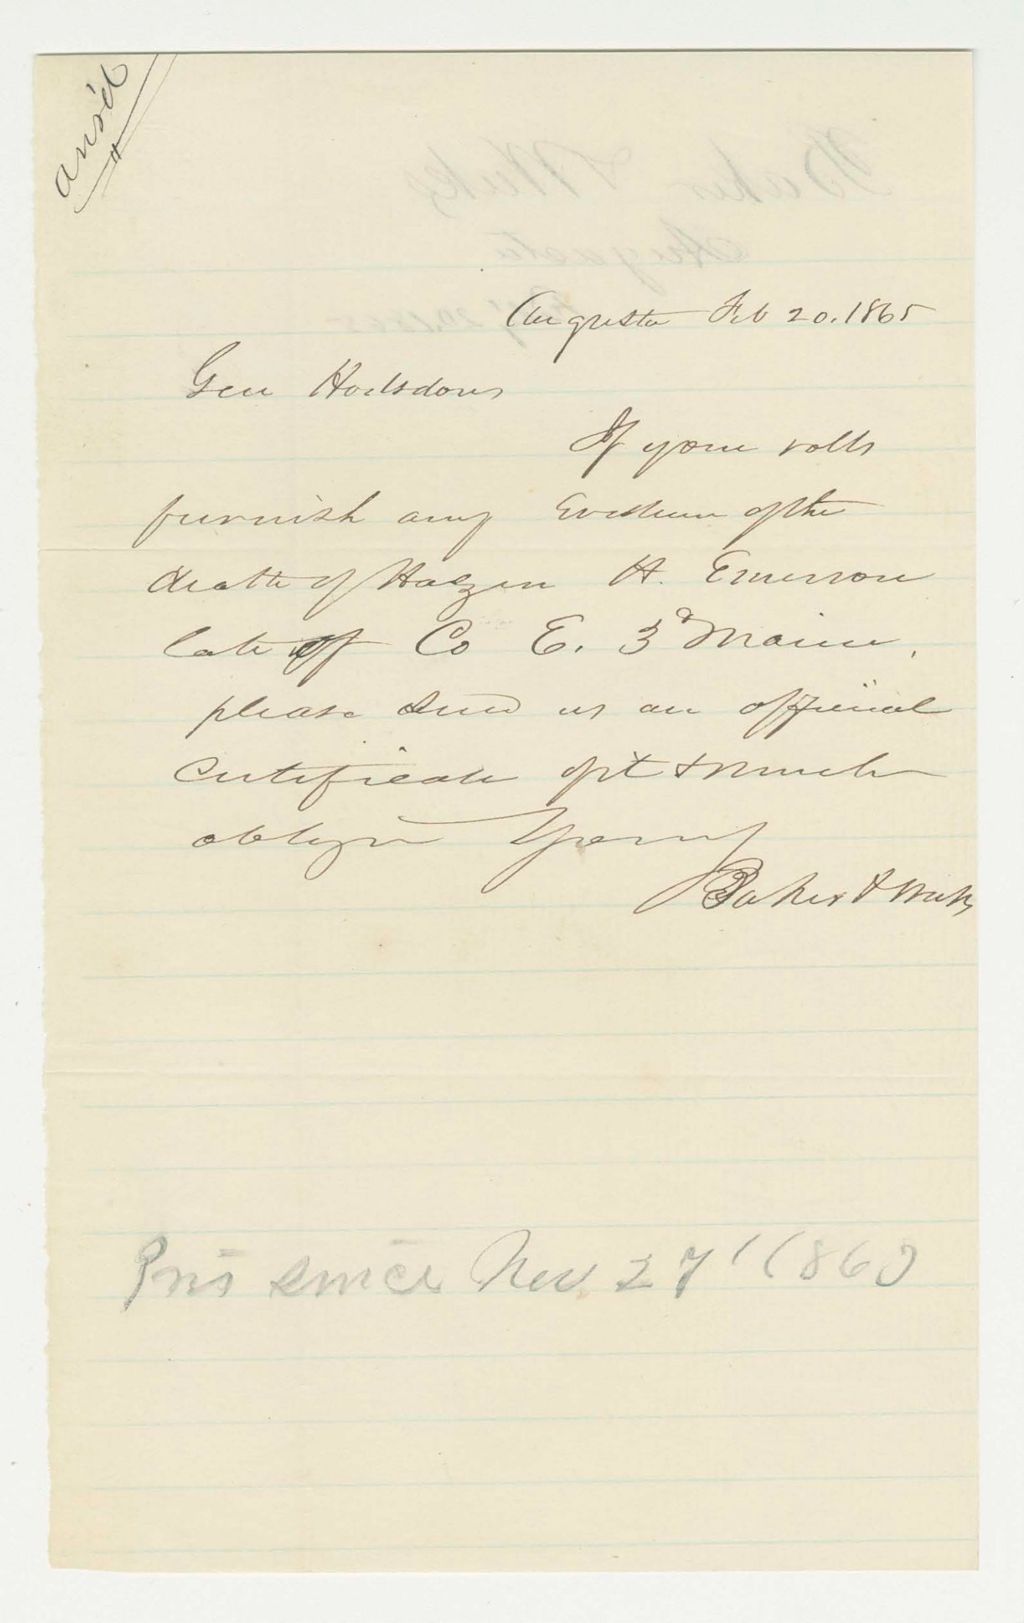 ans'd
Augusta Feb 20, 1865
Gen Hodsdon
If your rolls
furnish any Evidence of the
death of Hazen H. Emerson
late of Co E. 3d Maine,
please send us an official
certificate of it & much
oblige Yours
Baker & Weeks
Pris since Nov. 27 1863